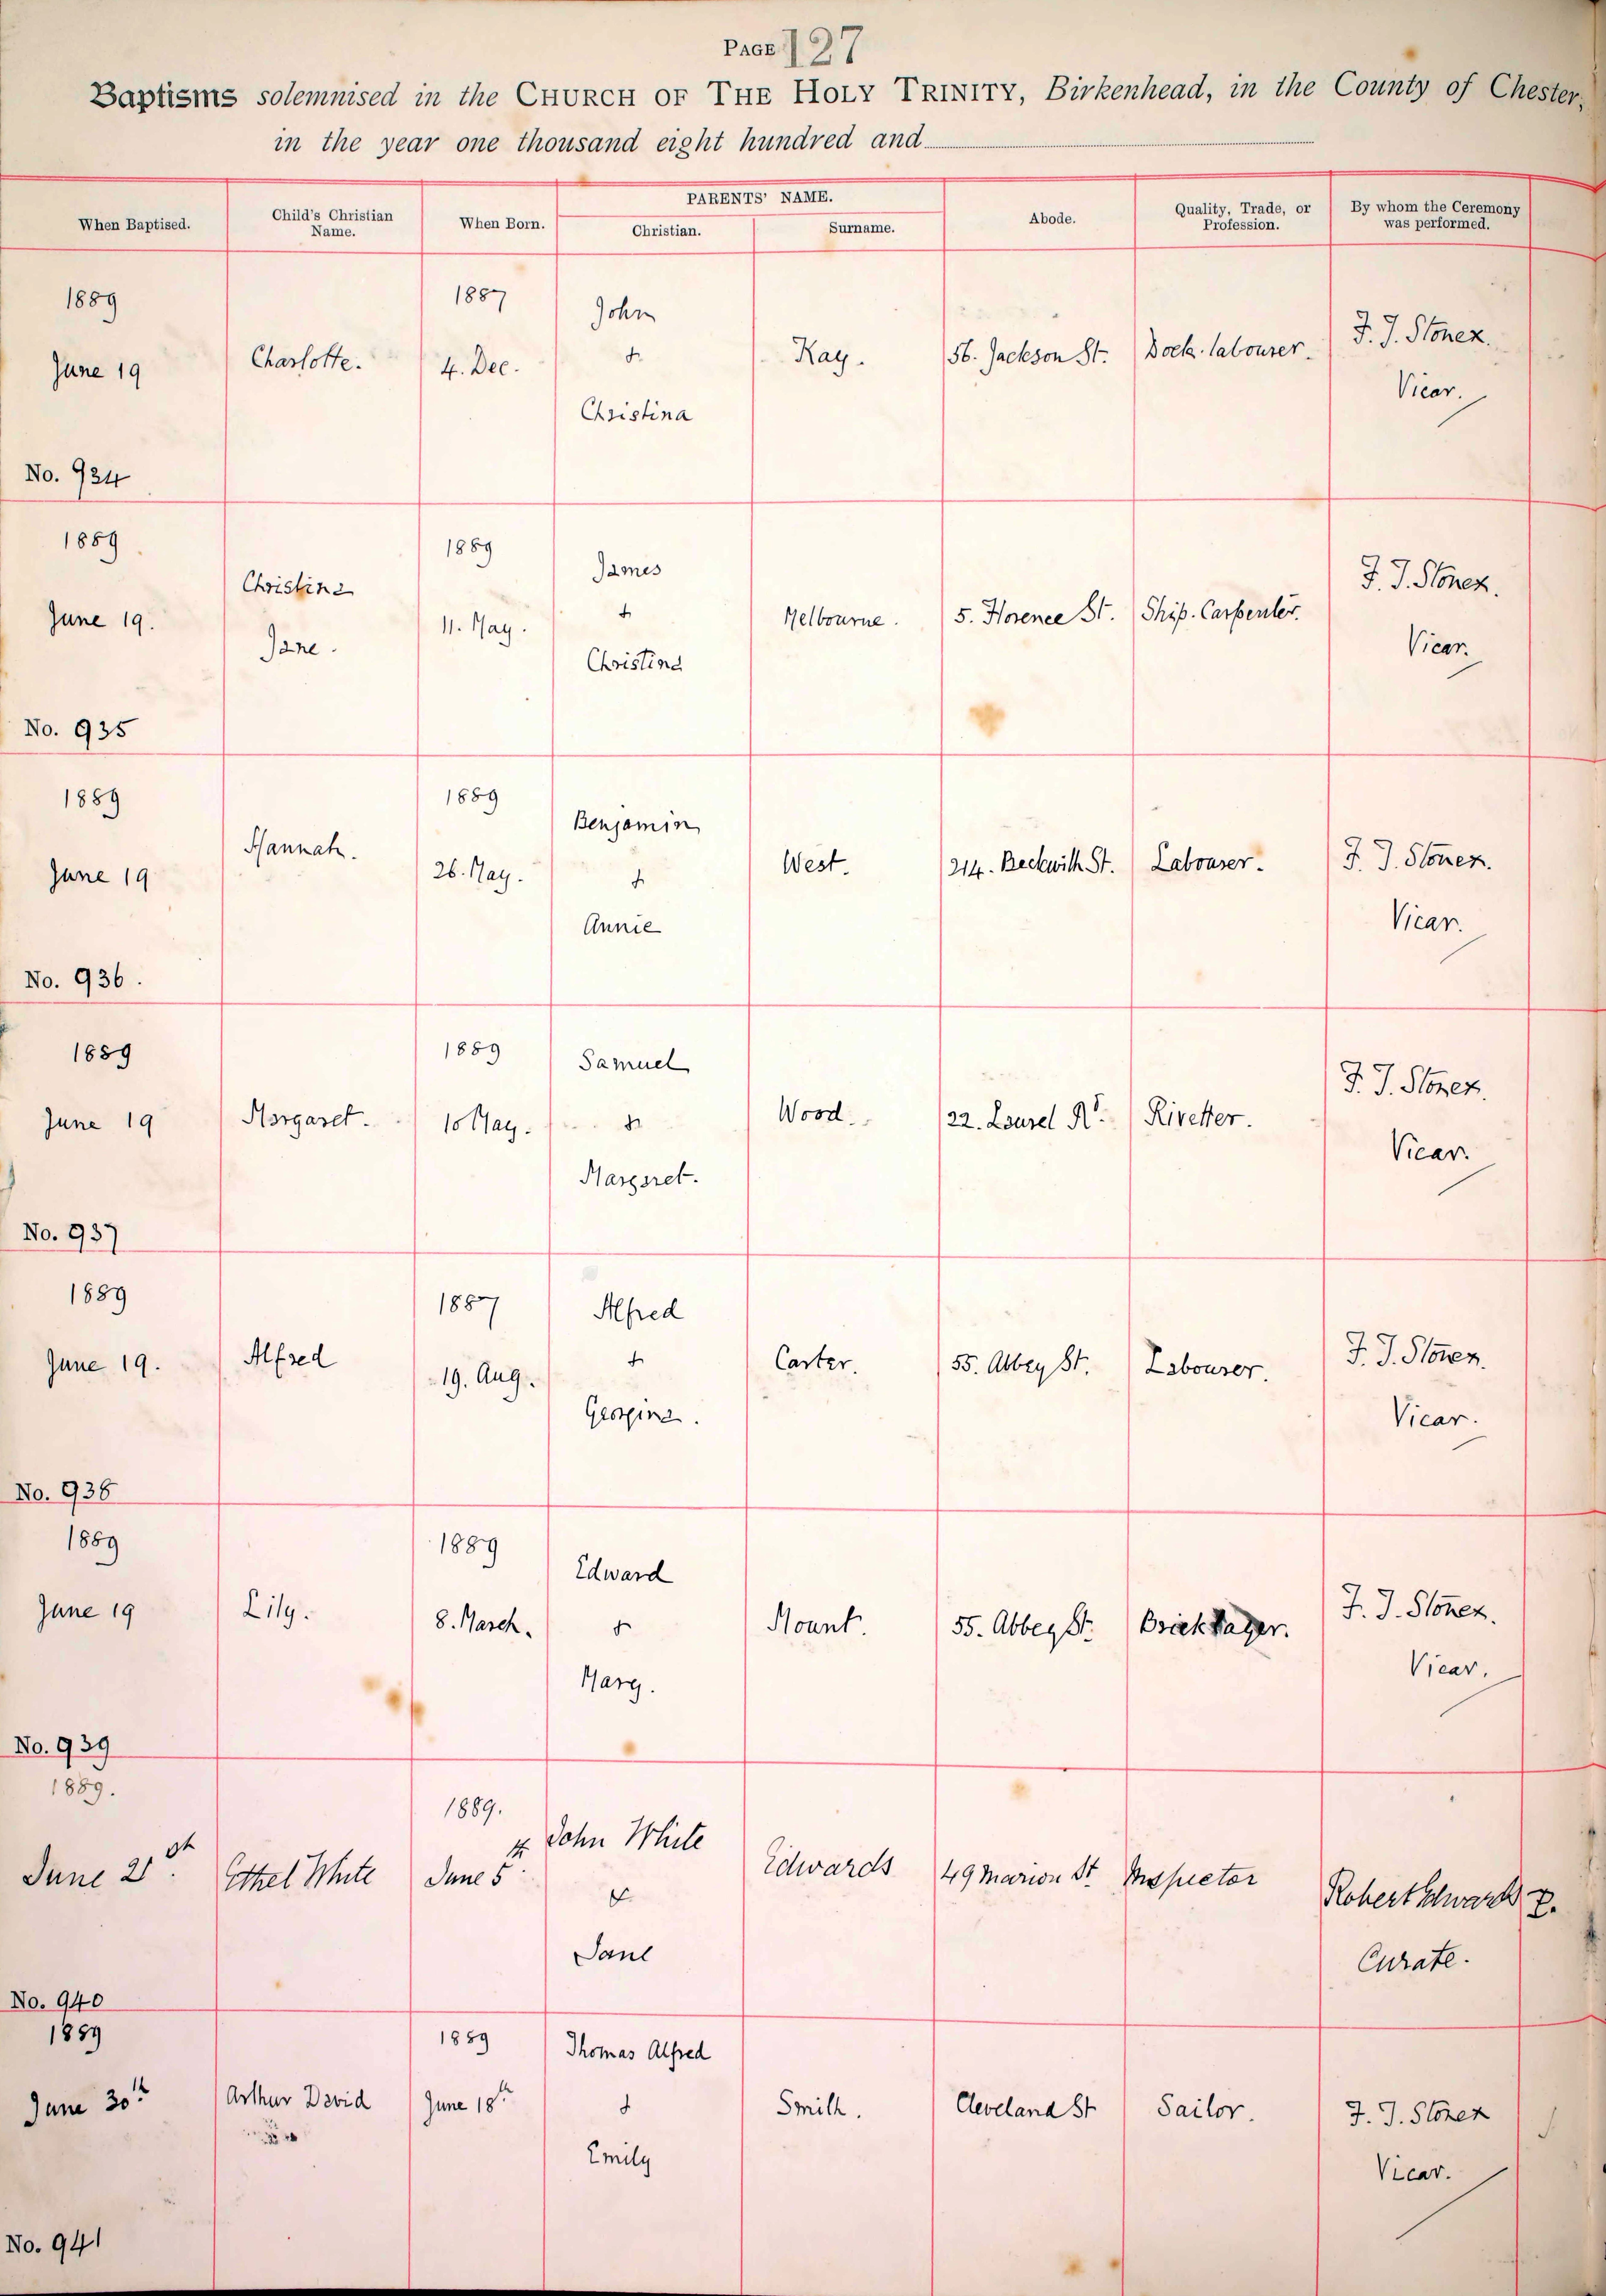 PAGE 127
Baptisms solemnised in the CHURCH OF THE HOLY TRINITY, Birkenhead, in the County of Chester,
in the year one thousand eight hundred and
When Baptised. Child's Christian Name. When Born. PARENTS' NAME. Christian. Surname. Abode. Quality, Trade, or Profession. By whom the Ceremony was performed.
1889 1887 John
June 19 Charlotte. 4. Dec. & Kay. 56. Jackson St. Dock. labourer. F. J. Stonex.
Christina Vicar.
No. 934
1889 1889 James
Christina F. J. Stonex.
June 19. Jane. 11. May. & Melbourne. 5. Florence St. Ship. Carpenter.
Christina Vicar.
No. 935
1889 1889 Benjamin
June 19 Hannah. 26. May. & West. 214. Beckwith St. Labourer. F. J. Stonex.
Annie Vicar.
No. 936.
1889 1889 Samuel
June 19 Margaret. 10 May. & Wood. 22. Laurel Rd. Rivetter. F. J. Stonex.
Margaret. Vicar.
No. 937
1889 1887 Alfred
June 19. Alfred 19. Aug. & Carter. 55. Abbey St. Labourer. F. J. Stonex.
Georgina. Vicar.
No. 938
1889 1889 Edward
June 19 Lily. 8. March. & Mount. 55. Abbey St. Brick F. J. Stonex.
Mary. Vicar.
No. 939
1889. 1889. John White
Ethel White June 5th & Edwards 49 Marion St. Inspector Robert Edwards
Curate.
No. 940
1889 1889 Thomas Alfred
June 30th Arthur David June 18th & Smith. Cleveland St Sailor. F. J. Stonex
Emily Vicar.
No. 941